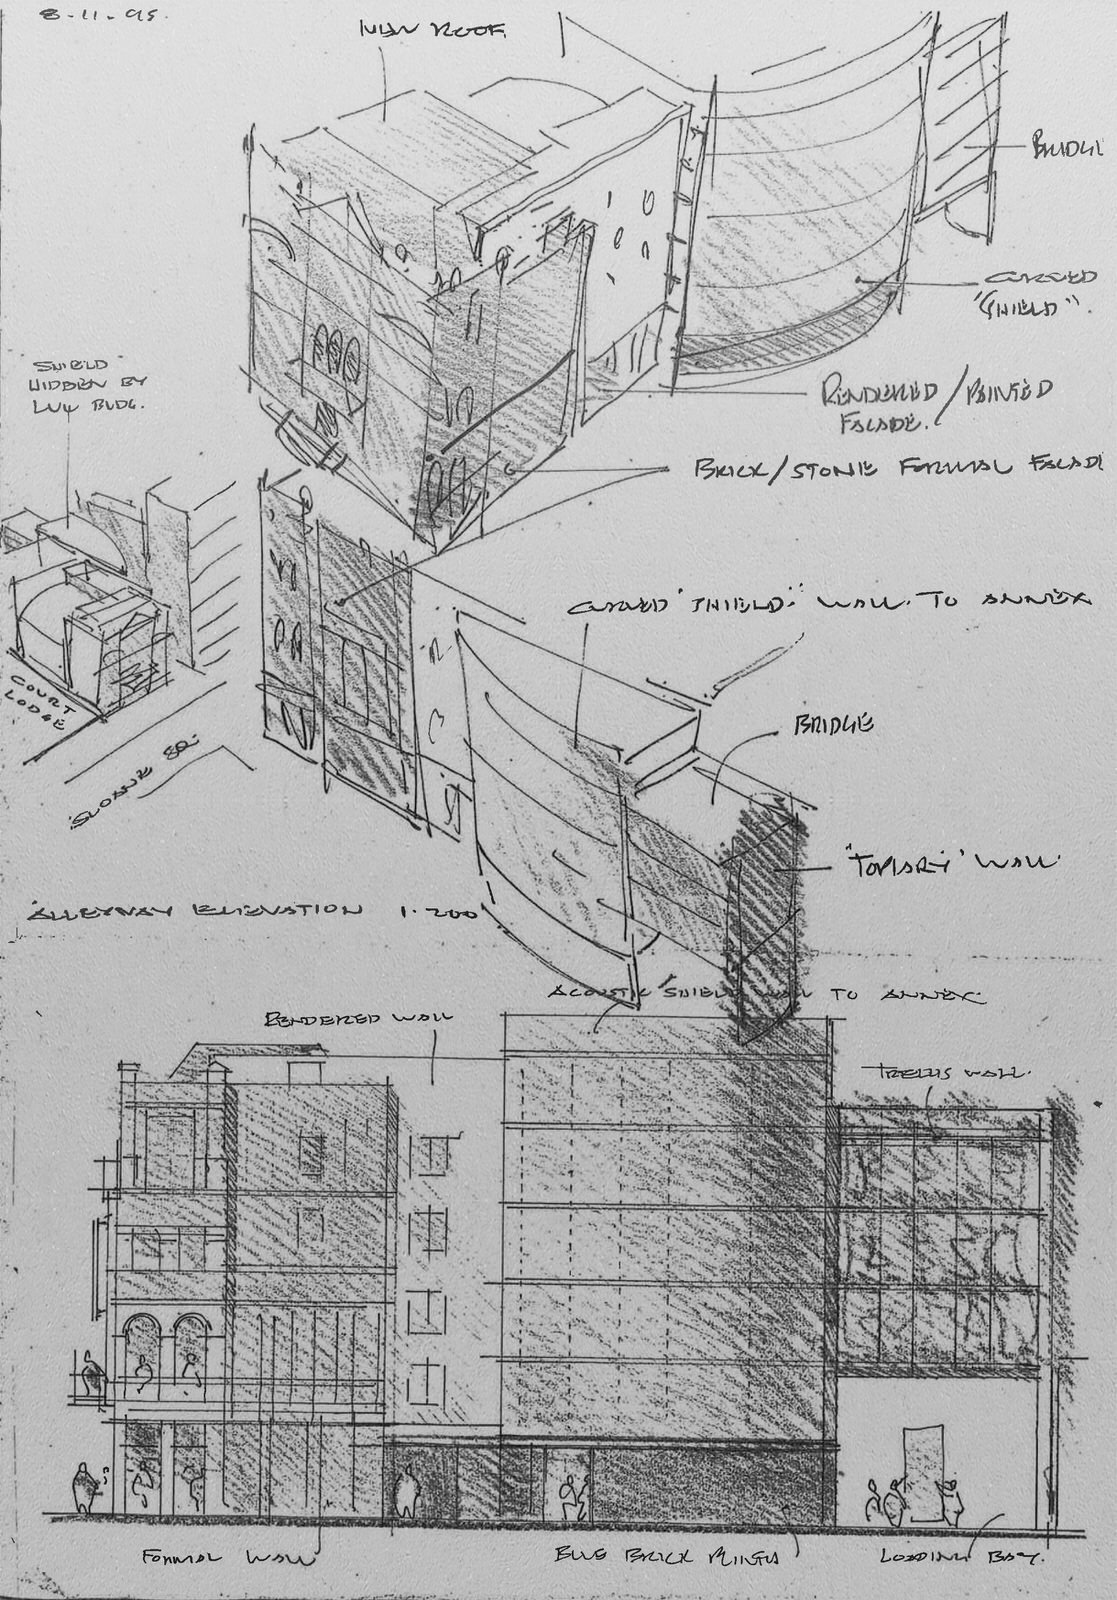 8-11-95.
NEW ROOF
BRIDGE
CURVED
"SHIELD".
"SHIELD"
HIDDEN BY
BLDG.
RENDERED/PAINTED
FACADE.
BRICK/STONE FORMAL FACADE
CURVED "SHIELD" WALL TO ANNEX
COURT
LODGE
SLOANE SQ.
BRIDGE
"TOPIARY" WALL
ALLEYWAY ELEVATION 1.200
ACOUSTIC SHIELD WALL TO ANNEX
RENDERED WALL
TRELLIS WALL.
FORMAL WALL
BLUE BRICK PLINTH
LOADING BAY.